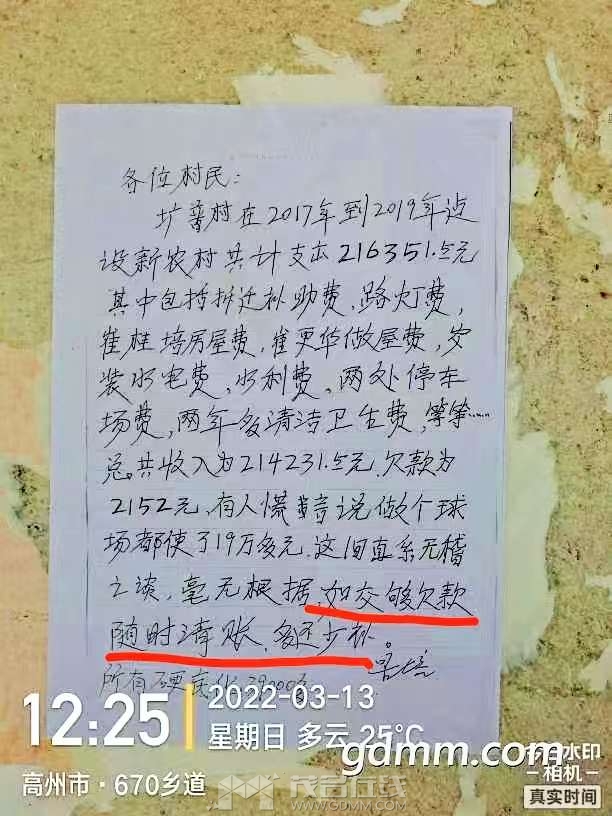 各位村民：
扩普村在2017年到2019年边
设新农村共计支出216351.5元
其中包括拆迁补助费，路灯费，
崔桂培房屋费，崔更华做屋费，安
装水电费，水利费，两处停车
场费，两年多清洁卫生费，等等……
总共收入为214231.5元.欠款为
2152元，有人慌 说做个球
场都使了19万多元.这间直系无稽
之谈，毫无根据，如交够欠款
随时清账，多还少补。
所有硬底化29000多
12:25
2022-03-13
星期日 多云 25℃
高州市·670乡道
gdmm.com
水印
相机
真实时间
茂名在线
WWW.GDMM.COM